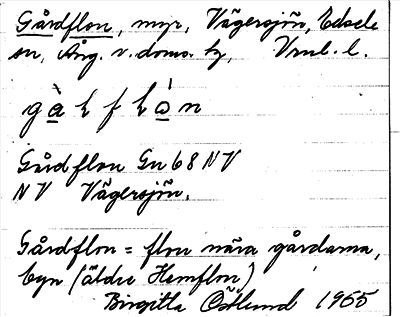 Gårdflon, myr, Vägersjön, Edsele
sn, Ång. v. doms. tg, Vrnl. l.
Gårdflon Gn 68 NV
NV Vägersjön.
Gårdflon = flon nära gårdarna,
byn (äldre Hemflon)
Birgitta Östlund 1965